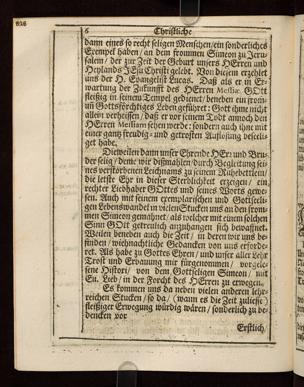 6 Christliche
dann eines so recht seligen Menschen / ein sonderliches
Exempel haben / an dem frommen Simeon zu Jeru-
salem / der zur Zeit der Geburt unsers HErren und
Heylands JEsu Christi gelebt. Von diesem erzehlet
uns der H. Evangelist Lucas. Daß als er in Er-
wartung der Zukunfft des HErren Messiæ, GOtt
fleißig in seinem Tempel gedienet / beneben ein from
Gottsförchtiges Leben geführet: Gott ihme nicht
allein verheissen / daß er vor seinem Todt annoch den
HErren Messiam sehen werde: sondern auch ihne mit
einer gantz freudig- und getrosten Aufflösung beseeli-
get habe.
Dieweilen dann unser Ehrende HErr und Bru-
der selig / deme wir dißmahlen / durch Begleitung sei-
nes verstorbenen Leichnams zu seinem Ruhebettlein /
die letste Ehr in dieser Sterblichkeit erzeigen / ein
rechter Liebhaber GOttes und seines Worts gewe-
sen. Auch mit seinem exemplarischen und Gottseeli-
gen Lebenswandel in vielen Stucken uns an den from-
men Simeon gemahnet / als welcher mit einem solchen
Sinn GOtt getreulich anzuhangen sich bewaffnet.
Weilen beneben auch die Zeit / in deren wir uns be-
finden / wiehnachtliche Gedancken von uns erforde-
ret. Als habe zu Gottes Ehren / und unser aller Lehr
Trost und Erbauung mir fürgenommen /
Histori / von dem Gottseligen Simeon / mit
Eu. Lieb / in der Forcht des HErren zu erwegen.
Es kommen uns da neben vielen anderen lehr-
reichen Stucken / so da / (wann es die Zeit zuliesse)
fleißiger Erwegung würdig wären / sonderlich zu be-
dencken vor
Erstlich /